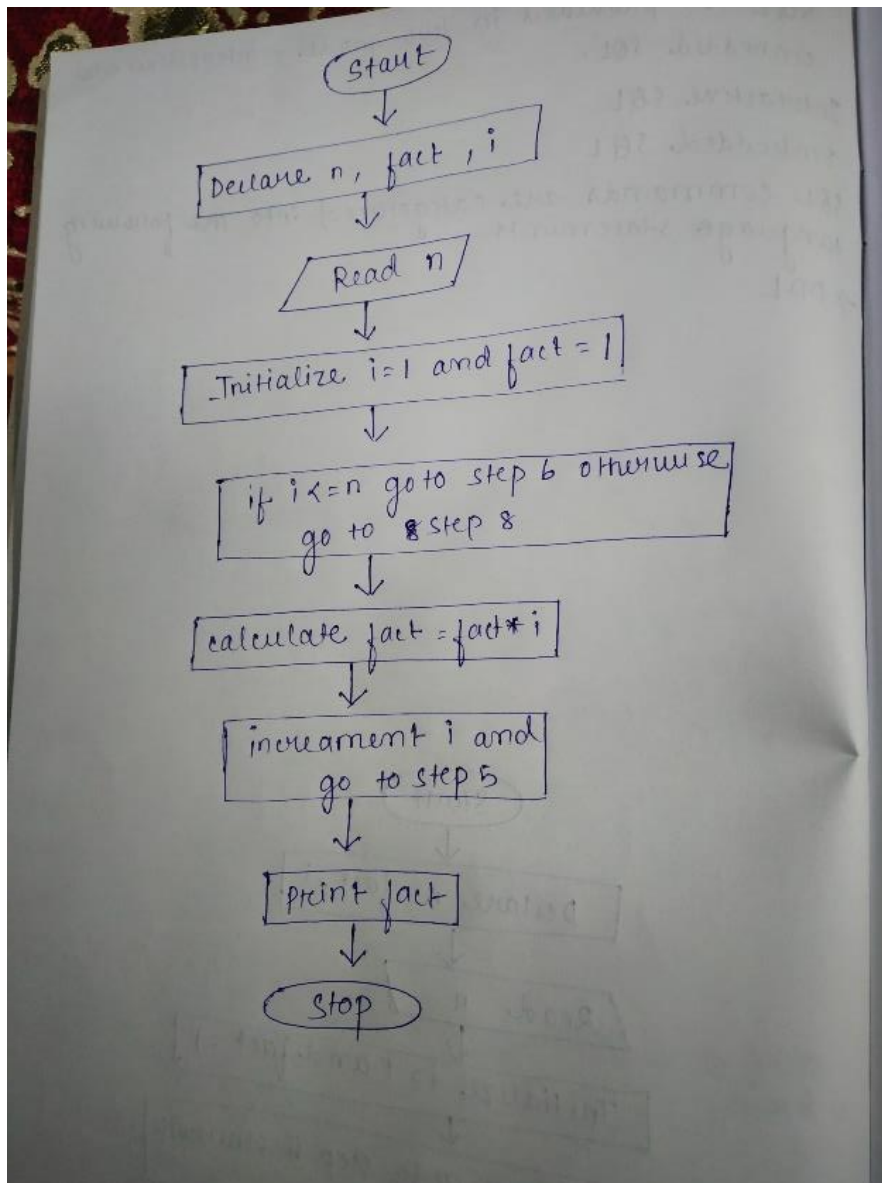 Start
Declare n, fact, i
Read n
Initialize i=1 and fact = 1
if i<=n go to step 6 otherwise
go to step 8
calculate fact = fact* i
increament i and
go to step 5
print fact
Stop